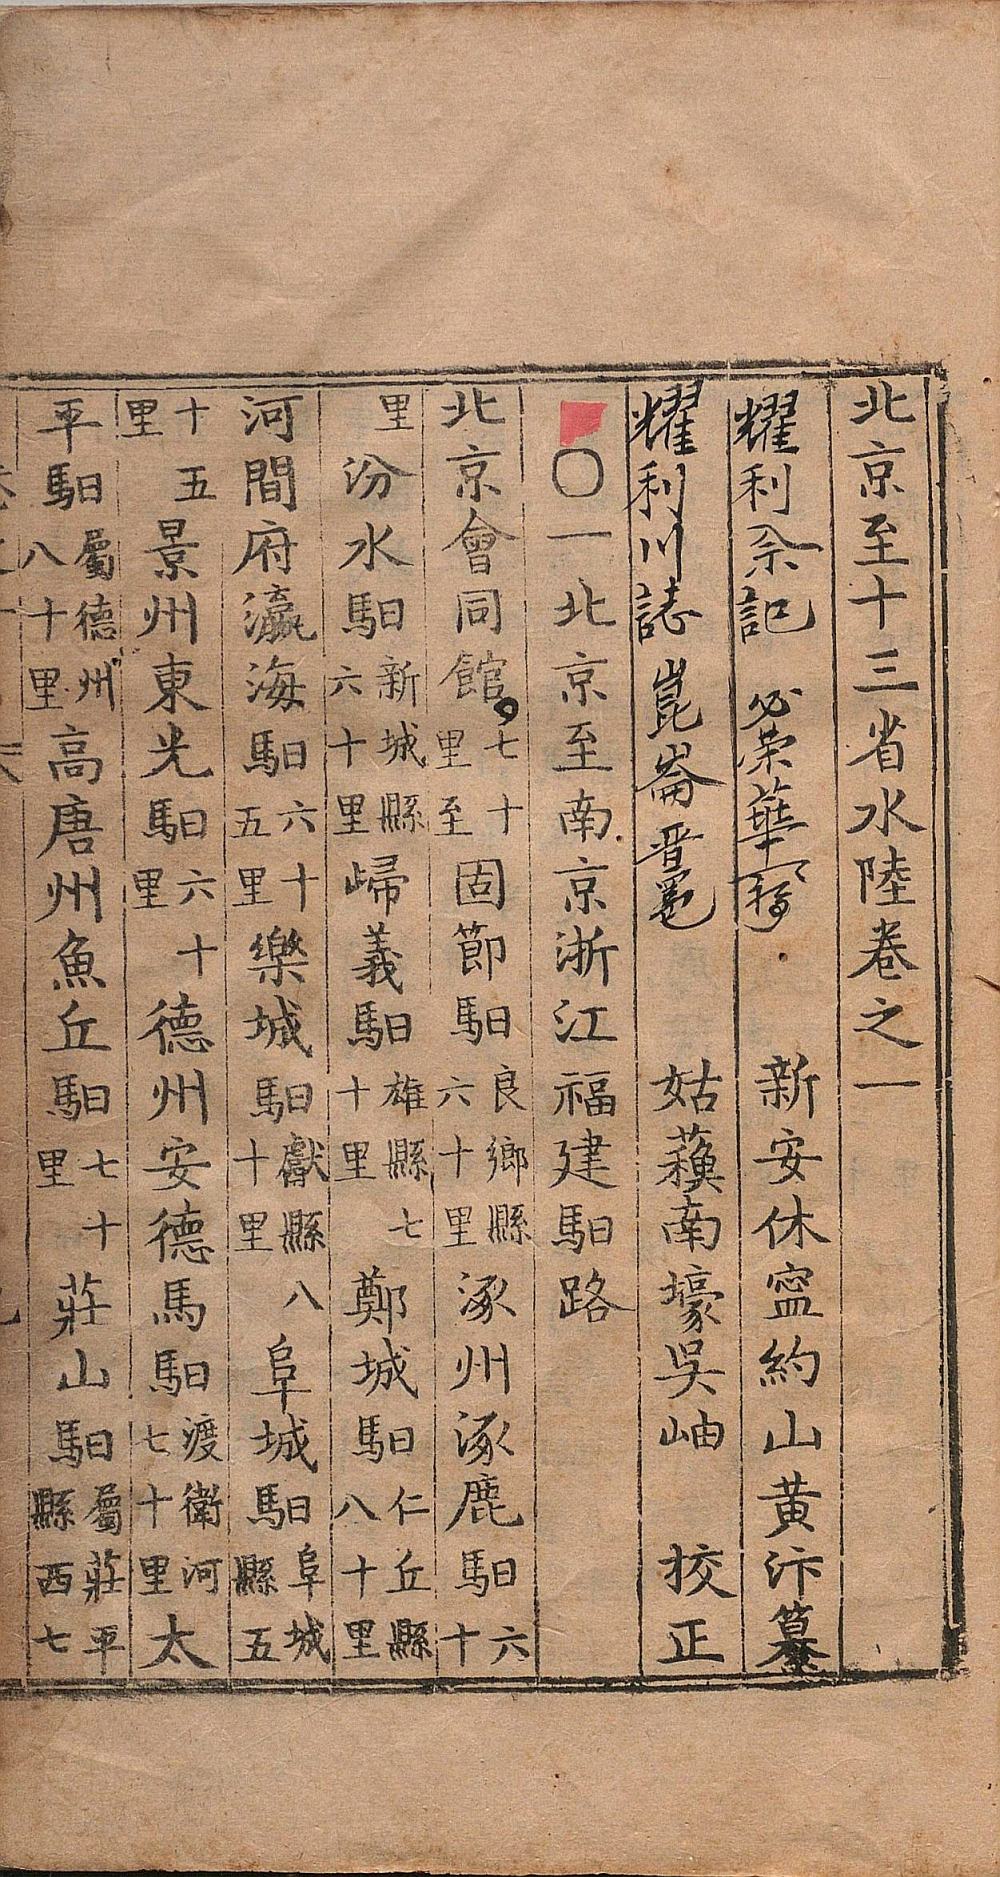 北京至十三省水陸卷之一
新安休寍約山黃汴纂
耀利川誌 姑蘓南壕吳岫 挍正
〇一北京至南京浙江福建馹路
北京會同館七十里至固節馹良鄉縣六十里涿州涿鹿馹六十
里汾水馹新城縣六十里歸義馹雄縣七十里鄭城馹仁丘縣八十里
河間府瀛海馹六十五里樂城馹獻縣八十里阜城馹阜城縣五
十五里景州東光馹六十里德州安德馬馹渡衛河七十里太
平馹屬德州八十里高唐州魚丘馹七十里莊山馹屬莊平縣西七